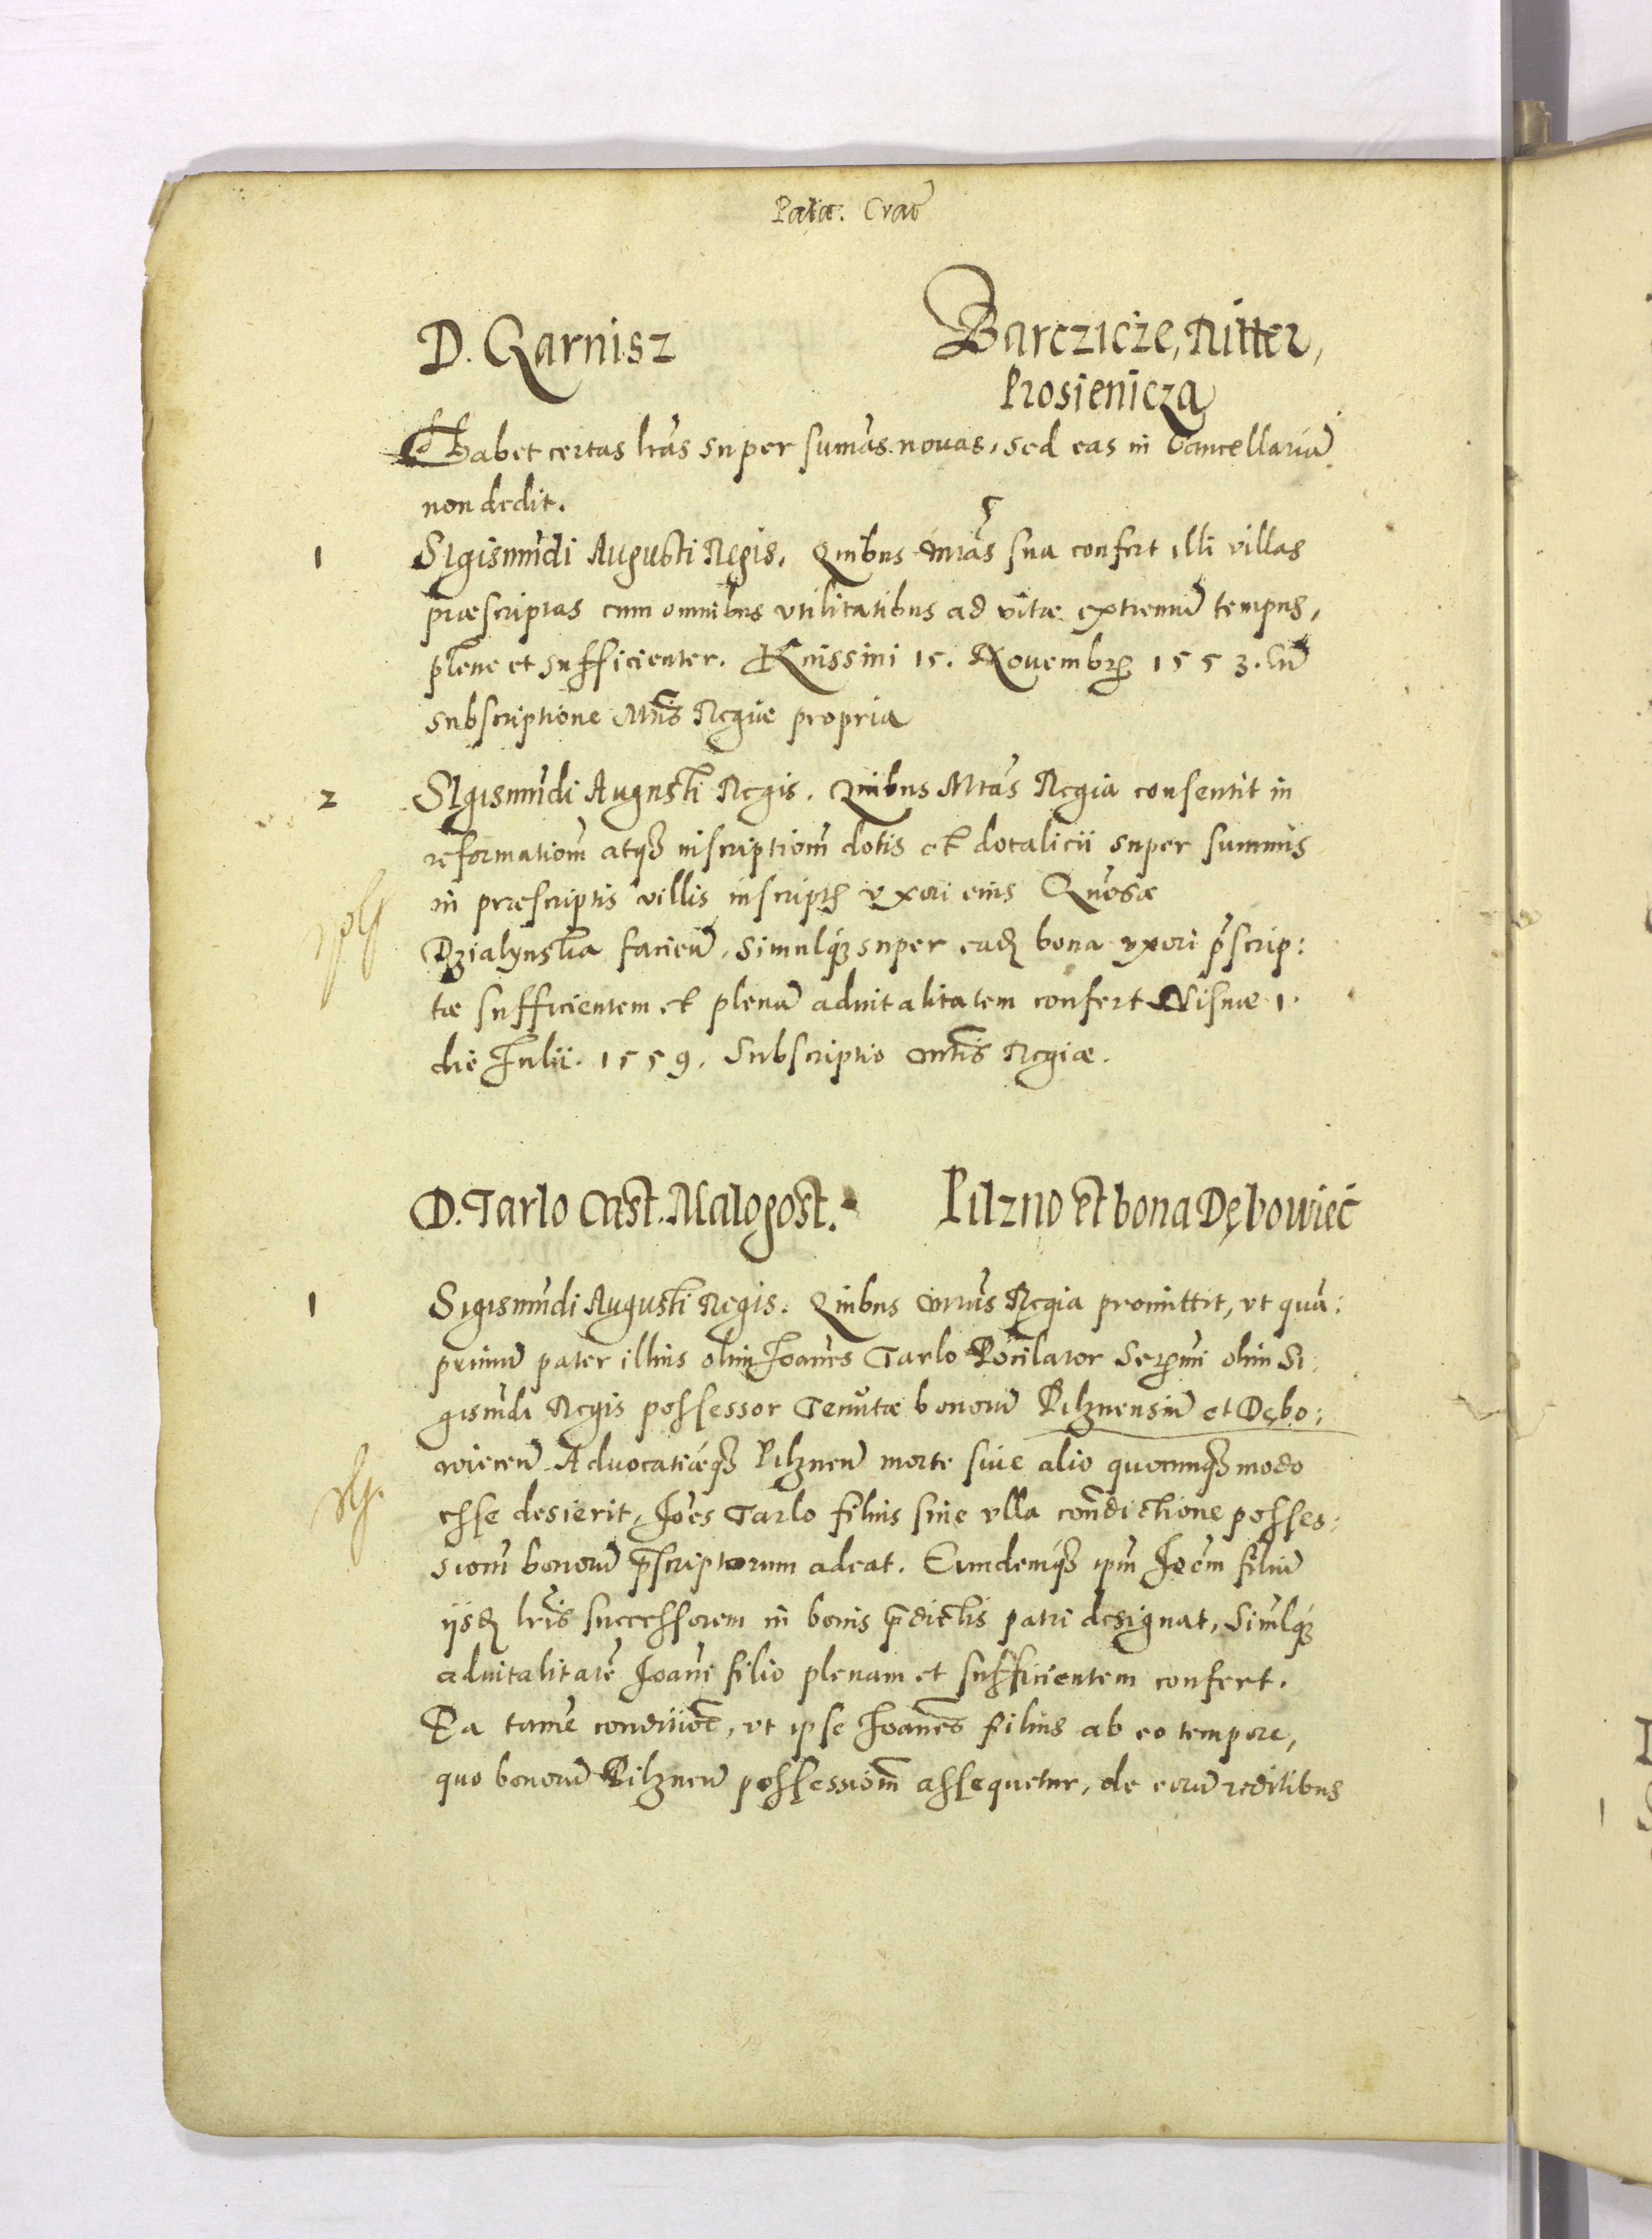 Pala: Crac̃
D. Garnisz
Barczicze, Ritter,
Prosienicza
Habet certas lr̃as super sum̃as nouas, sed eas in Cancellariã
non dedit.
1 Sigismũdi Augusti Regis. Quibus Mtãs sua confert illi villas
præscriptas cum omnibus vtilitatibus ad vitæ extremũ tempus,
plene et sufficienter. Knissini 15. Nouembr̃ 1553. Cũ
subscriptione Mtĩs Regiæ propria
2 Sigismũdi Augusti Regis. Quibus Mtãs Regia consentit in
reformationẽ atq3 inscriptionẽ dotis et dotalicii super summis
in præscriptis villis inscriptis vxori eius
Dzialynska faciend̃, simulq3 super ead̃ bona vxori p̃scrip:
tæ sufficientem et plenã aduitalitatem confert Vilnæ 1.
die Julii. 1559. Subscriptio Mtĩs Regiæ.
D. Tarlo Cast. Malogost.
Pilzno et bona Dębowiec
1 Sigismũdi Augusti Regis. Quibus Mtãs Regia promittit, vt quã:
primũ pater illius olim Joañes Tarlo Pocilator Ser̃mi olim Si:
gismũdi Regis possessor Tenutæ bonorũ Pilznensiũ et Dębo:
wiecen̄ Aduocatiæq3 Pilznen̄ morte siue alio quocunq3 modo
esse desierit, Joẽs Tarlo filius sine vlla contradictione posses:
sionẽ bonorũ p̃scriptorum adeat. Eundemq3 ipm̃ Joẽm filiũ
iisd̃ lr̃is successorem in bonis p̃dictis patri designat, Simulq3
aduitalitatẽ Joañi filio plenam et sufficientem confert.
Ea tamẽ conditiõe, vt ipse Joanes filius ab eo tempore,
quo bonorũ Pilznen̄ possessionẽ assequetur, de eorũ reditibus